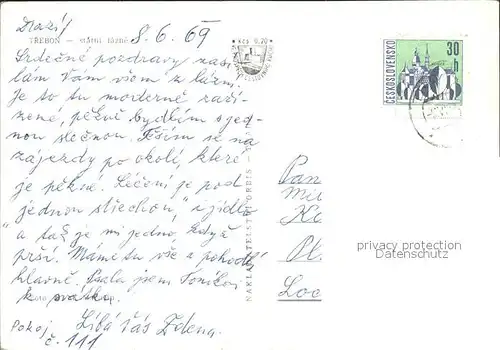 Drazí! 8. 6. 69
TŘEBOŇ – státní lázně
Kčs 0,70
Srdečné pozdravy zasí-
lám Vám všem z lázní.
Je to tu moderně zaří-
zené, pěkně bydlím s jed-
nou slečnou. Těším se na
zájezdy po okolí, které
je pěkné. Léčení je pod
"jednou střechou," i jídlo
a tak je mi jedno, když
prší. Máme tu vše a pohodlí
hlavně. Psala jsem Toníkovi
k svátku.
Líbá Vás Zdena.
Pokoj
č. 111
NAKLADATELSTVÍ ORBIS
ČESKOSLOVENSKO
30 h
Pan
Loc
privacy protection
Datenschutz